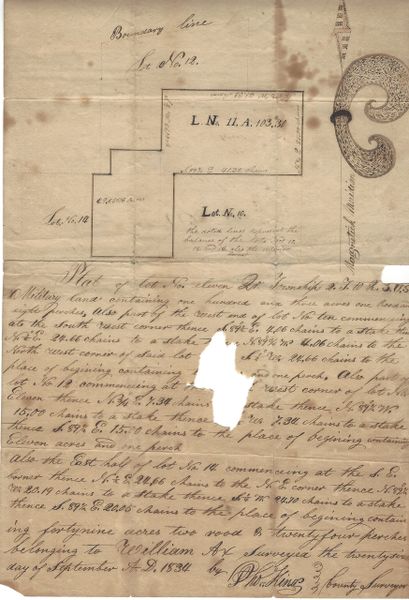 Boundary line
Lot No. 12.
L. N. 11. A. 103,31
N 89½ E 41.30 chains
Lot. No. 14
Lot. N. 10.
the dotted lines represent the
balance of the lots Nos 10,
12 and 14
Magnetick Meridian
Plat of lot No. eleven 2d Township
Military land containing one hundred and three acres one Rood and
eight perches, Also part of the west end of lot No. ten commencing
at the South west corner thence S. 89½ E. 4.06 chains to a stake thence
N ½ E. 24.66 chains to a stake N 89½ W 4.06 chains to the
North west corner of said lot S ½ W 24.66 chains to the
place of begining containing and one perch. Also part of
lot No 12 commencing at west corner of lot No.
Eleven thence N ¾ E. 7.34 chains stake thence N. 89½ W
15,00 chains to a stake thence W. 7.34 chains to a stake
thence S. 89½ E. 15.00 chains to the place of begining containing
Eleven acres and one perch
Also the East half of lot No 14 commencing at the S. E.
corner thence N ½ E. 24.66 chains to the N. E corner thence N 89½
W 20.19 chains to a stake thence S ½ W 24.70 chains to a stake
thence S. 89½ E. 20.05 chains to the place of begining contain
ing fortynine acres two rood & twentyfour perches
belonging to William Ax Surveyed the twentysix
day of September A. D. 1834 by
County Surveyor